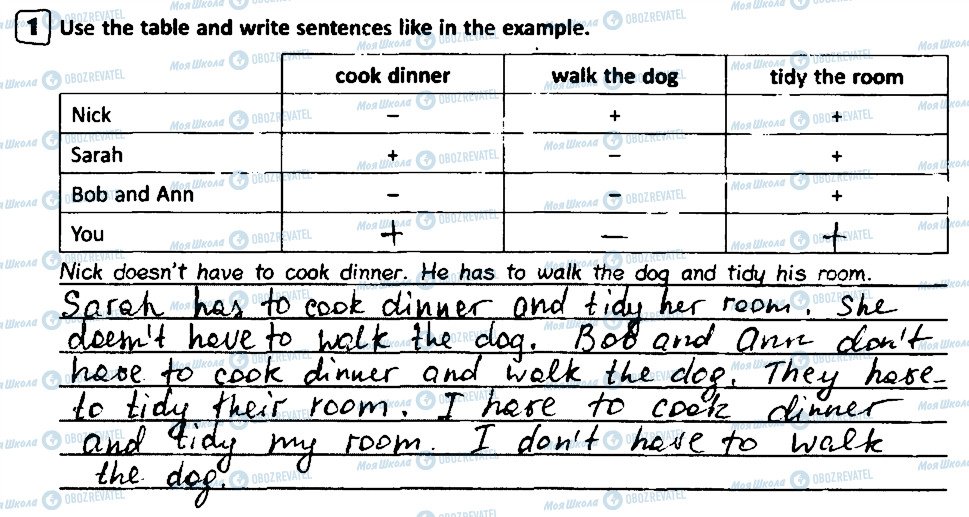 1 Use the table and write sentences like in the example.
cook dinner walk the dog tidy the room
Nick – + +
Sarah + – +
Bob and Ann – – +
You + – +
Nick doesn't have to cook dinner. He has to walk the dog and tidy his room.
Sarah has to cook dinner and tidy her room. She
doesn't have to walk the dog. Bob and Ann don't
have to cook dinner and walk the dog. They have
to tidy their room. I have to cook dinner
and tidy my room. I don't have to walk
the dog.
Моя Школа OBOZREVATEL